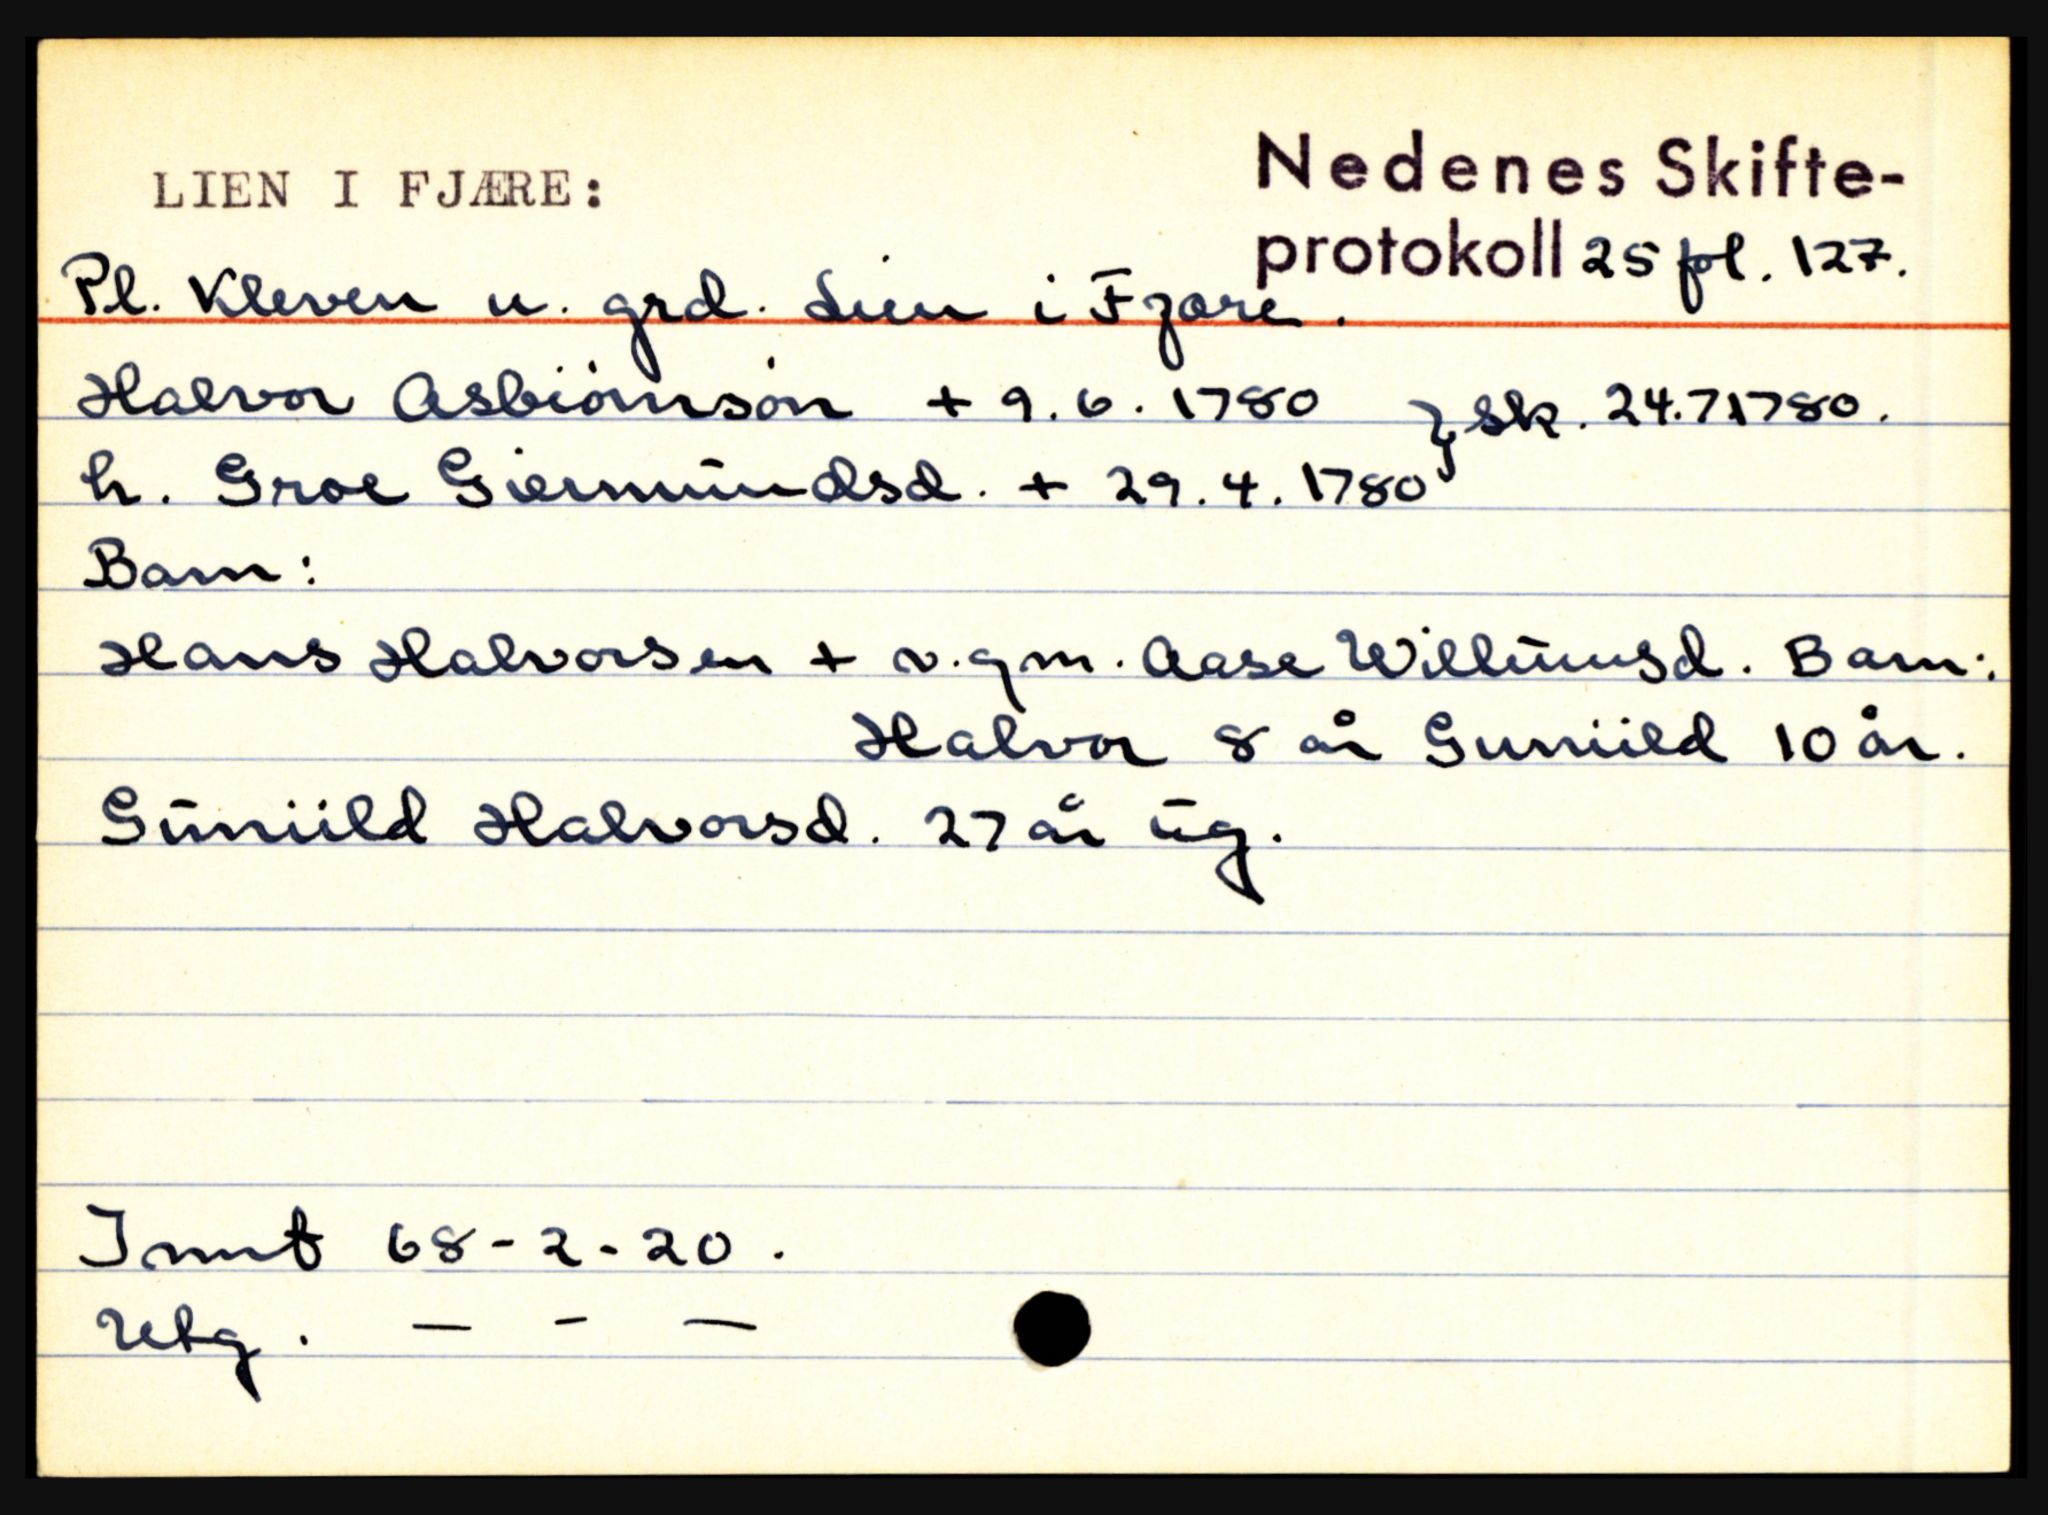 LIEN I FJÆRE:
Nedenes Skifte-
protokoll 25 fol. 127.
Pl. Kleven u. grd. Lien i Fjære.
Halvor Asbiörnsön + 9.6.1780 } sk. 24.7 1780.
h. Groe Giermundsd. + 29.4.1780
Barn:
Hans Halvorsen + v. gm. Aase Willumsd. Barn:
Halvor 8 år Guniild 10 år.
Guniild Halvorsd. 27 år ug.
Innt 68-2-20.
Utg. — - —